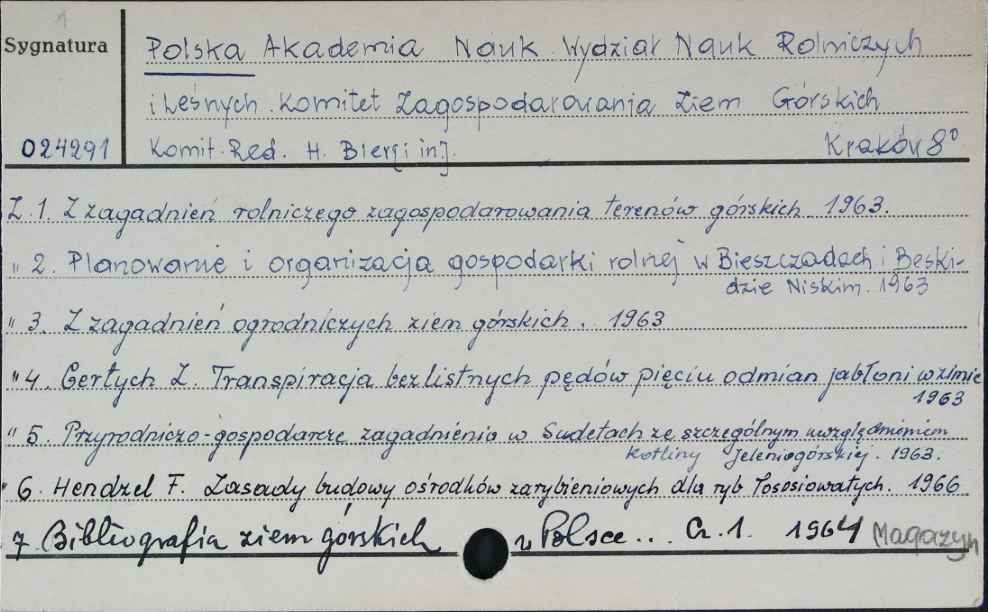 1
Sygnatura
Polska Akademia Nauk. Wydział Nauk Rolniczych
i Leśnych. Komitet Zagospodarowania Ziem Górskich
024291 Komit. Red. H. Bier [i in]. Kraków 8°
Z. 1. Z zagadnień rolniczego zagospodarowania terenów górskich 1963.
" 2. Planowanie i organizacja gospodarki rolnej w Bieszczadach i Beski-
dzie Niskim. 1963
" 3. Z zagadnień ogrodniczych ziem górskich.. 1963
" 4. Gertych Z. Transpiracja bezlistnych pędów pięciu odmian jabłoni w zimie
1963
" 5. Przyrodniczo-gospodarcze zagadnienia w Sudetach ze szczególnym uwzględnieniem
kotliny Jeleniogórskiej. 1963.
" 6. Hendzel F. Zasady budowy ośrodków zarybieniowych dla ryb łososiowatych. 1966.
7. Bibliografia ziem górskich w Polsce... Cz. 1. 1964 Magazyn